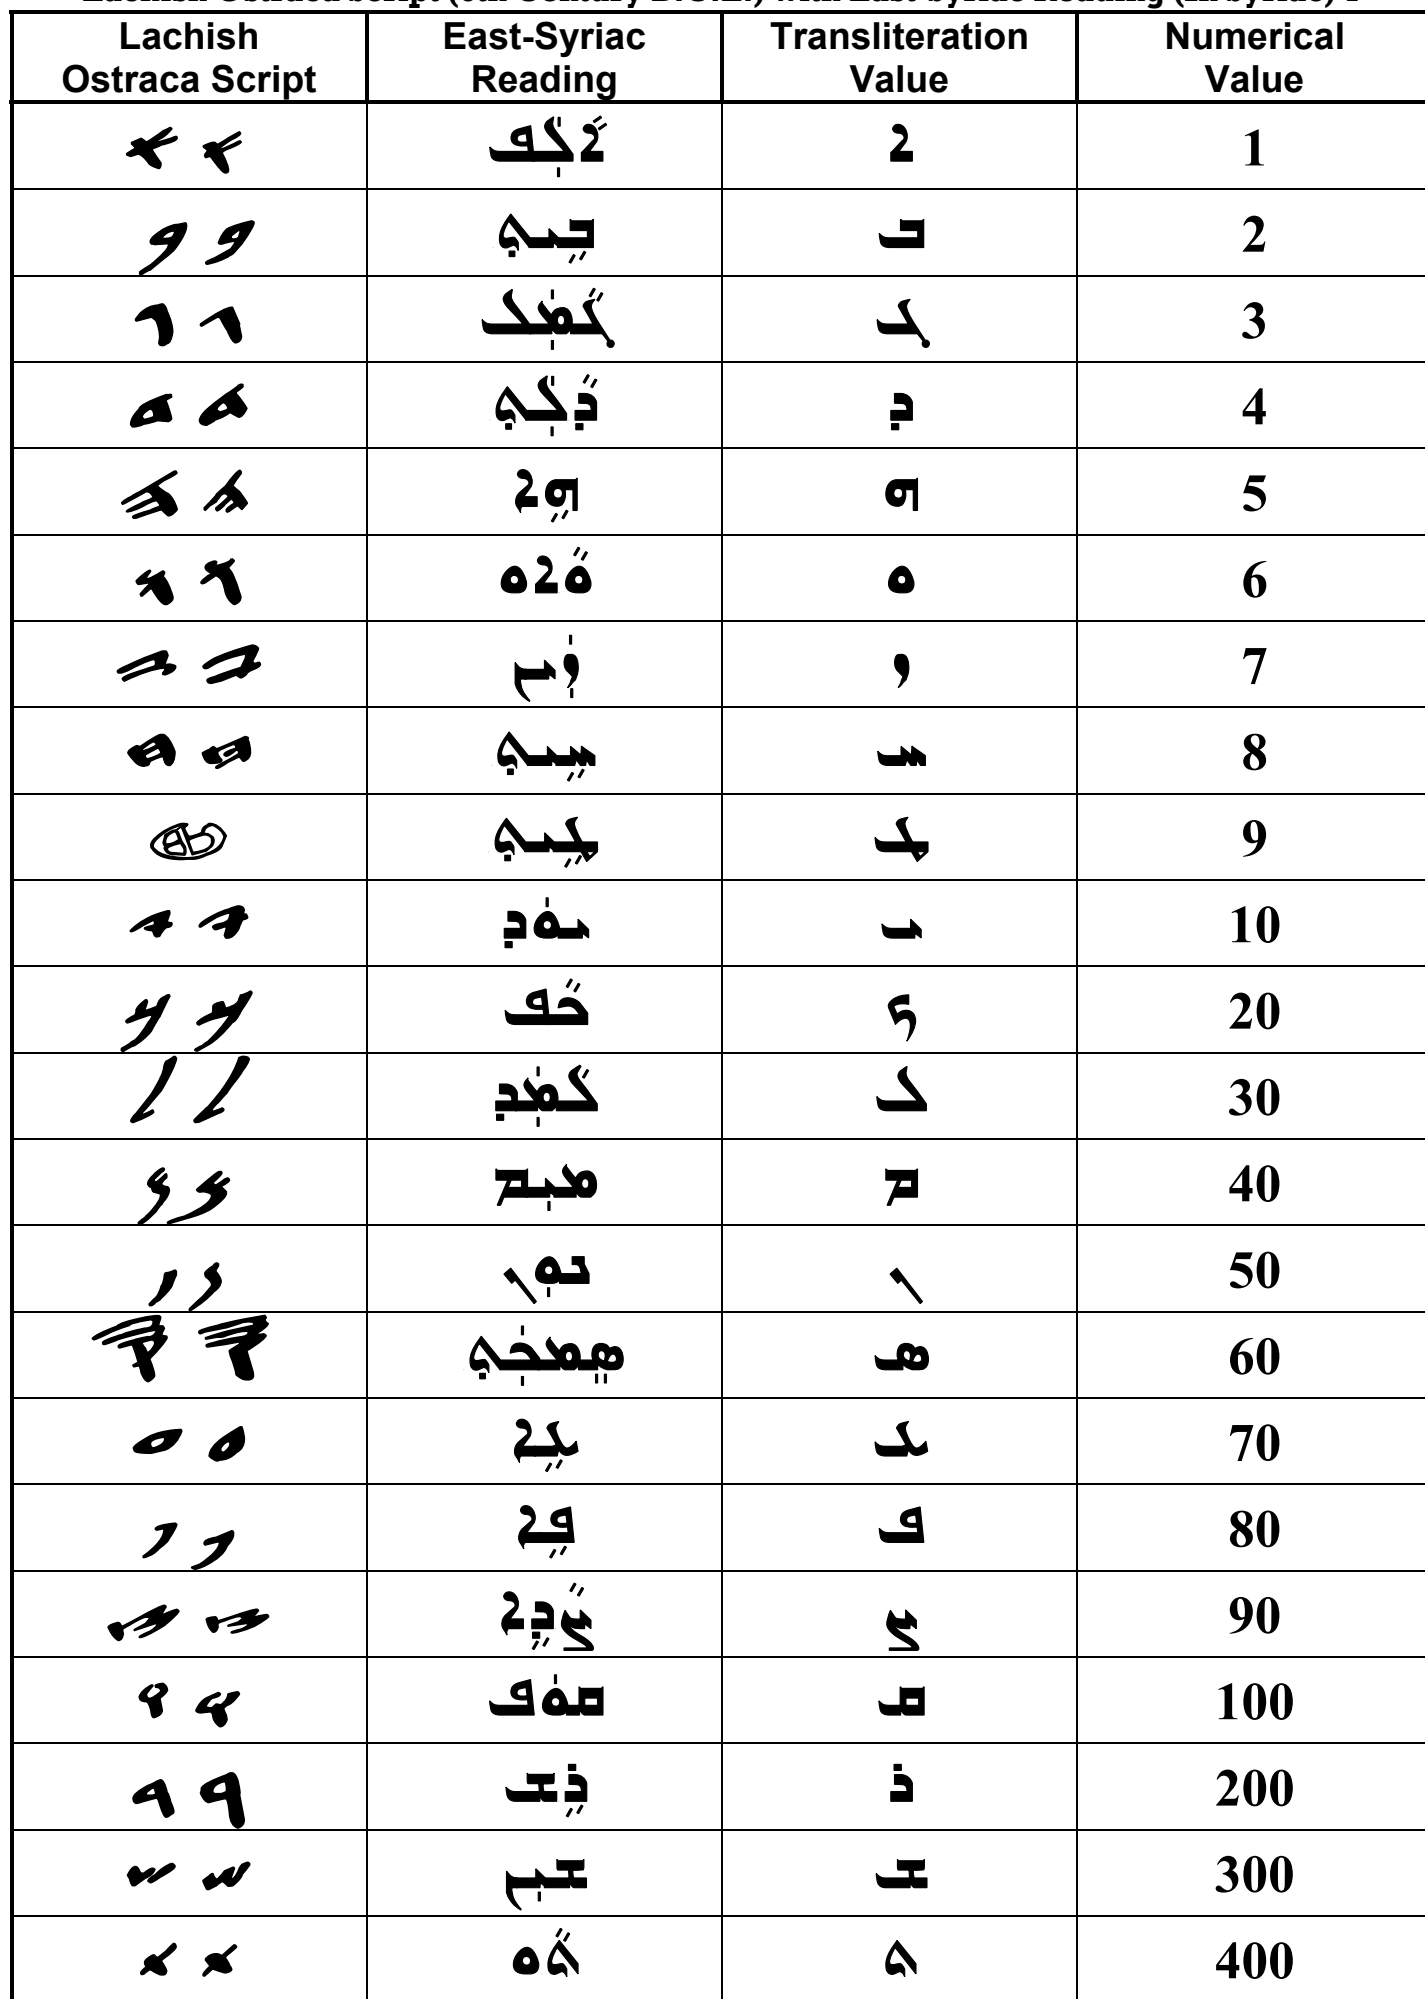 Lachish Ostraca Script	East-Syriac Reading	Transliteration Value	Numerical Value
ܐܵܠܲܦ	ܐ	1
ܒܹܝܬ݂	ܒ	2
ܓܵܡܲܠ	ܓ	3
ܕܵܠܲܬ݂	ܕ	4
ܗܹܐ	ܗ	5
ܘܵܐܘ	ܘ	6
ܙܲܝܢ	ܙ	7
ܚܹܝܬ݂	ܚ	8
ܛܹܝܬ݂	ܛ	9
ܝܘܿܕ	ܝ	10
ܟܵܦ	ܟ	20
ܠܵܡܲܕ	ܠ	30
ܡܝܼܡ	ܡ	40
ܢܘܼܢ	ܢ	50
ܣܸܡܟܲܬ݂	ܣ	60
ܥܹܐ	ܥ	70
ܦܹܐ	ܦ	80
ܨܵܕܹܐ	ܨ	90
ܩܘܿܦ	ܩ	100
ܪܹܫ	ܪ	200
ܫܝܼܢ	ܫ	300
ܬܵܘ	ܬ݂	400